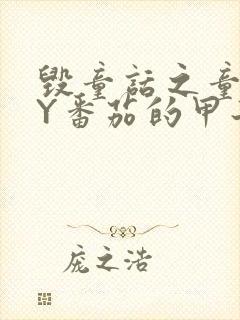 毁童话之童
Y番茄的甲
庞之浩